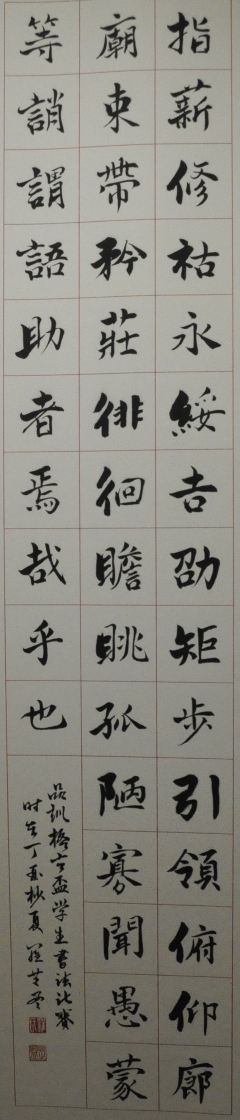 指薪修祜永綏吉劭矩步引領俯仰廊
廟束帶矜莊徘徊瞻眺孤陋寡聞愚蒙
等誚謂語助者焉哉乎也
品訓格言盃学生書法比賽
时在丁亥秋夏